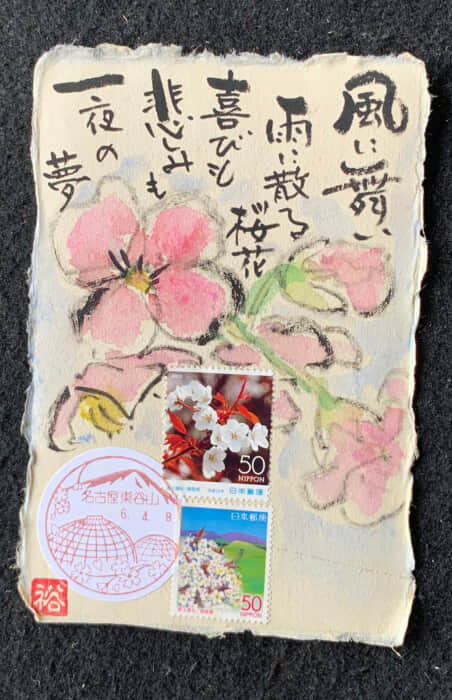 風に舞い
雨に散る
桜花
喜びも
悲しみも
一夜の
夢
50
NIPPON
日本郵便
日本郵便
50
NIPPON
名古屋東谷山
6.4.8
裕